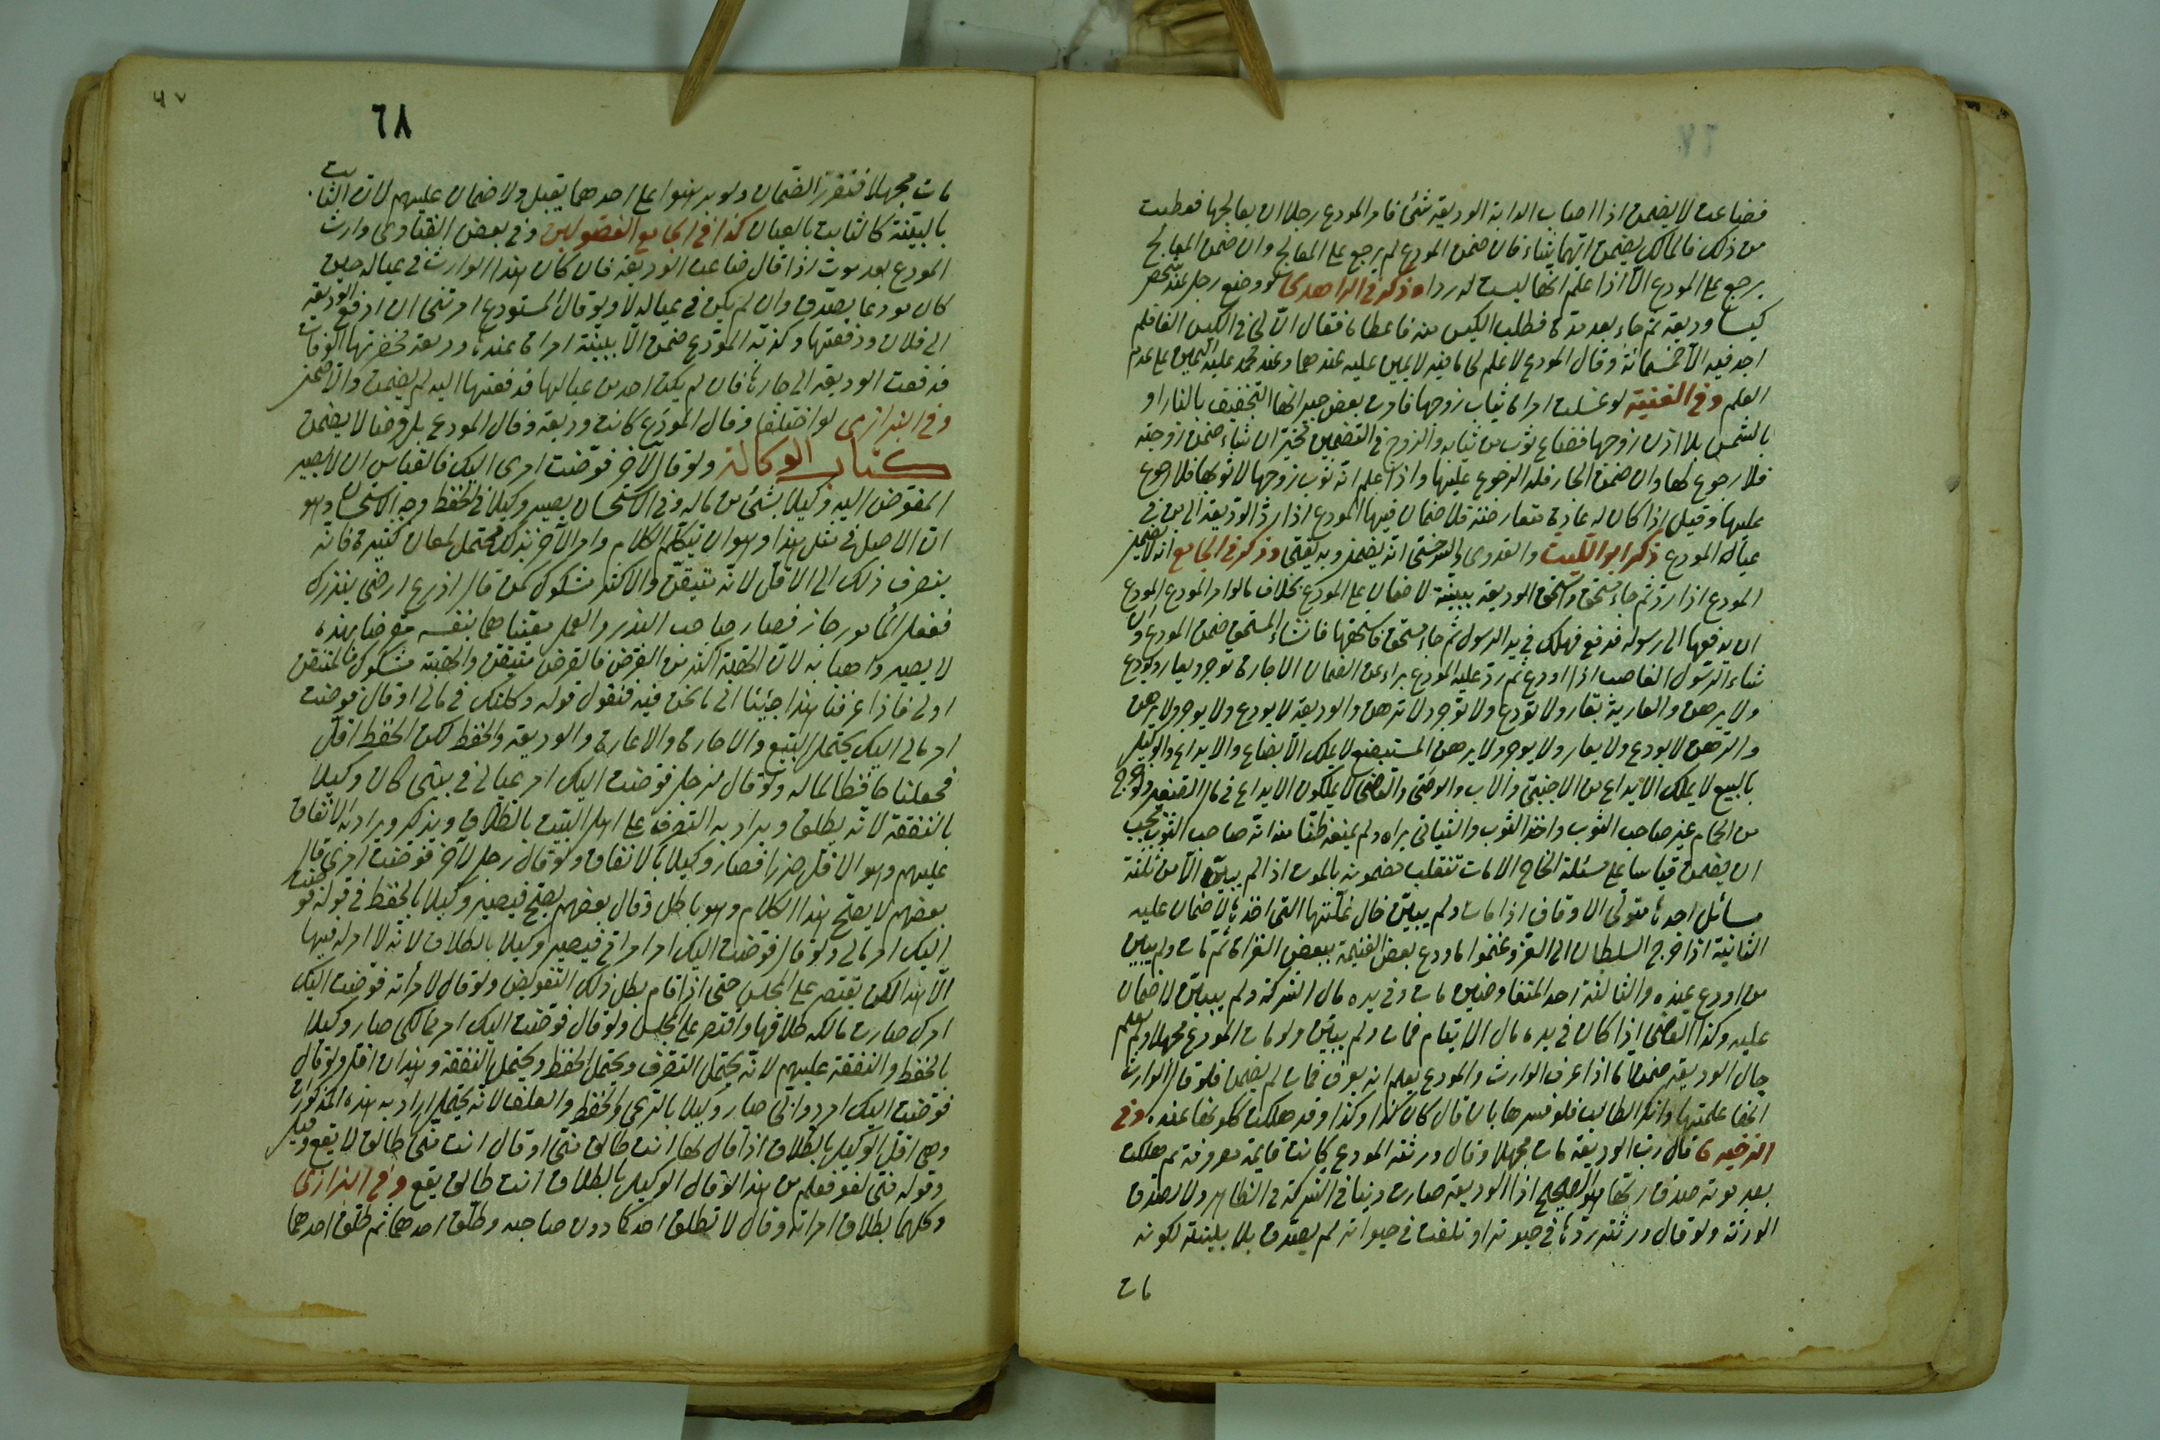 فضاعت لا يضمن اذا اصاب الدابة الوديعة شئ فامر المودع رجلا ان يعالجها فعطبت
من ذلك فالمالك يضمن ايهما شاء فان ضمن المودع لم يرجع على المعالج وان ضمن المعالج
يرجع على المودع الا اذا علم انها ليست له وذكر في الزاهدى لو وضع رجل عند شخص
كيسا وديعة ثم جاء بعد مدة فطلب الكيس منه فاعطاه فقال ان لى في الكيس الفا فلم
اجد فيه الا خمسمائة وقال المودع لا علم لى ما فيه لا يمين عليه عندهما وعند محمد عليه اليمين على عدم
العلم وفي القنية لو غسلت امراة ثياب زوجها فامرت بعض جيرانها التجفيف بالنار او
بالشمس بلا اذن زوجها فضاع ثوب من ثيابه والزوج في التضمين تخير ان شاء ضمن زوجته
فلا رجوع لها وان ضمن الجار فله الرجوع عليها واذا علم انه ثوب زوجها لا ثوبها فلا رجوع
عليها وقيل اذا كان له عادة متعارضة فلا ضمان فيها المودع اذا رد الوديعة الى من في
عيال المودع ذكر ابو الليث والقدورى والسرخسى انه يضمن وبه يفتى وذكر في الجامع انه لا يضمن
المودع اذا رد ثم جاء مستحق واستحق الوديعة ببينة لا ضمان على المودع بخلاف ما لو امر المودع المودع
ان يدفعها الى رسوله فدفع فهلك في يد الرسول ثم جاء مستحق فاستحقها فان شاء المستحق ضمن المودع وان
شاء الرسول الغاصب اذا اودع ثم رد عليه المودع براء عن الضمان الاجارة يوجر ويعار ويودع
ولا يرهن والعارية تعار ولا تودع ولا توجر ولا ترهن والوديعة لا يودع ولا يوجر ولا يرهن
والرهن لا يودع ولا يعار ولا يوجر ولا يرهن المستبضع لا يملك الابضاع والايداع والوكيل
بالبيع لا يملك الايداع من الاجنبى والاب والوصى والقاضى لا يملكون الايداع في مال الصغير ولو خرج
من الحمام غير صاحب الثوب واخذ الثوب والثيابى يراه ولم يمنع ظنا منه انه صاحب الثوب يجب
ان يضمن قياسا على مسئلة الخاج الامانات تنقلب مضمونة بالموت اذا لم يبين الا من ثلثة
مسائل احدها متولى الاوقاف اذا مات ولم يبين حال غلتها التى اخذها لا ضمان عليه
الثانية اذا خرج السلطان الى الغزو وغنموا فاودع بعض الغنيمة ببعض الغزاة ثم مات ولم يبين
من اودع عنده والثالثة احد المتفاوضين مات وفي يده مال الشركة ولم يبين لا ضمان
عليه وكذا القاضى اذا كان في يده مال الايتام فمات ولم يبين ولو مات المودع مجهلا ولم يعلم
حال الوديعة ضمن اما اذا عرف الوارث والمودع يعلم انه يعرف فمات لم يضمن فلو قال الوارث
انا علمتها وانكر الطالب فلو فسرها بان قال كان كذا وكذا وقد هلكت كلو نها عنده وفي
الذخيرة قال رب الوديعة مات مجهلا وقال ورثة المودع كانت قايمة معروفة ثم هلكت
بعد موته صدق ربها هو الصحيح اذ الوديعة صارت دينا في التركة في الظاهر ولا يصدق
الورثة ولو قال ورثته ردها في حيوته او تلفت في حيواته لم يصدق بلا بينة لكونه
مات
٦٨
مات مجهلا فتقرر الضمان ولو برهنوا على احدهما يقبل ولا ضمان عليهم لان الثابت
بالبينة كالثابت بالعيان كذا في الجامع الفصولين وفي بعض الفتاوى وارث
المودع بعد موت اذا قال ضاعت الوديعة فان كان هذا الوارث في عياله حين
كان مودعا يصدق وان لم يكن في عياله لا ولو قال المستودع امرتنى ان ادفع الوديعة
الى فلان ودفعتها وكذبه المودع ضمن الا ببينة امراة عندها وديعة فحضرتها الوفات
فدفعت الوديعة الى جارها فان لم يكن احد من عيالها فدفعتها اليه لم يضمن والا ضمن
وفي البزازى لو اختلفا وقال المودع كانت وديعة وقال المودع بل قرضا لا يضمن
كتاب الوكالة ولو قال لآخر فوضت امرى اليك فالقياس ان لا يصير
المفوض اليه وكيلا بشئ من ماله وفي الاستحسان يصير وكيلا في الحفظ وجه الاستحسان وهو
ان الاصل في مثل هذا وهو ان يتكلم الكلام وامر الآخر بذلك محتمل لمعان كثيرة فانه
ينصرف ذلك الى الاقل لانه متيقن والاكثر مشكوك كمن قال ازرع ارضى ببذرك
ففعل المأمور جاز فصار صاحب البذر والعمل معينا هما بنفسه مقرضا بهذه
لا يصير واهبا به لان الهبة اكثر من القرض فالقرض متيقن والهبة مشكوك فالمتيقن
اولى فاذا عرفنا هذا جئنا الى ما نحن فيه فنقول قوله وكلتك في مالى او قال فوضت
امر مالى اليك يحتمل البيع والاجارة والاعارة والوديعة والحفظ لكن الحفظ اقل
فجعلنا حافظا لماله ولو قال لرجل فوضت اليك امر عيالى في بيتى كان وكيلا
بالنفقة لانه يطلق ويراد به التصرف على اهل البيت بالطلاق ويذكر ويراد به الانفاق
عليهم وهو الاقل ضررا فصار وكيلا بالانفاق ولو قال رجل لآخر فوضت امرى قال
بعضهم لا يصح هذا الكلام وهو باطل وقال بعضهم يصح فيصير وكيلا بالحفظ في قوله فوضت
اليك امر مالى ولو قال فوضت اليك امر امراتى فيصير وكيلا بالطلاق لانه لا امر له فيها
الا هذا لكن يقتصر على المجلس حتى اذا قام بطل ذلك التفويض ولو قال لامرأته فوضت اليك
امرك صارت مالكة طلاقها واقتصر على المجلس ولو قال فوضت اليك امر مماليكى صار وكيلا
بالحفظ والنفقة عليهم لانه يحتمل التصرف ويحتمل الحفظ ويحتمل النفقة وهذان اقل ولو قال
فوضت اليك امر دوابى صار وكيلا بالرعى والحفظ والعلف لانه يحتمل ان اراد به هذه المذكورات
وهى اقل الوكيل بالطلاق اذا قال لها انت طالق منى او قال انت منى طالق لا يقع وقيل
وقوله منى لغو فعلم من هذا لو قال الوكيل بالطلاق انت طالق يقع وفي البزازى
وكلهما بطلاق امراته وقال لا تطلق احدكما دون صاحبه وطلق احدهما ثم طلق احدهما